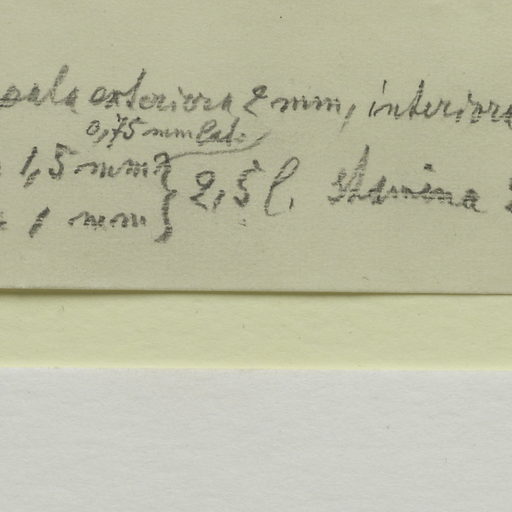 pala exteriora 2 mm, interiora
0,75 mm lat.,
1,5 mm } 2,5 l. Stamina
1 mm }